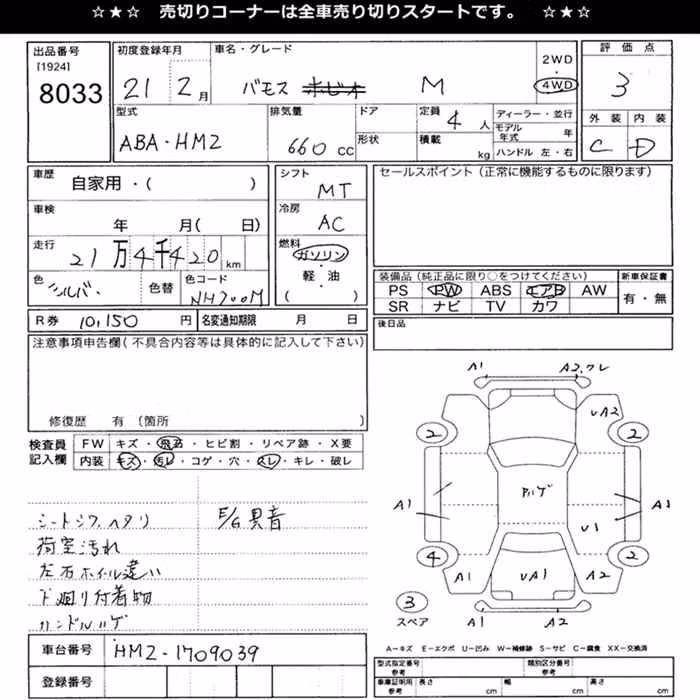 ☆★☆ 売切りコーナーは全車売り切りスタートです。 ☆★☆
出品番号
[1924]
8033
初度登録年月
21 2月
車名・グレード
バモス ホビオ M
2WD
4WD
評価点
3
型式
ABA・HM2
排気量
660 cc
ドア
形状
定員
4人
積載
kg
ディーラー・並行
モデル年式 年
ハンドル 左・右
外装 内装
C D
車歴
自家用・( )
シフト
MT
セールスポイント(正常に機能するものに限ります)
車検
年 月( 日)
冷房
AC
走行
21万4千420km
燃料
ガソリン
軽・油
( )
色
シルバ-
色替
色コード
NH700M
装備品(純正品に限り○をつけてください)
PS PW ABS エアB AW
SR ナビ TV カワ
新車保証書
有・無
R券 10,150円
名変通知期限 月 日
後日品
注意事項申告欄(不具合内容等は具体的に記入して下さい)
修復歴 有(箇所 )
検査員記入欄
FW キズ・飛石・ヒビ割・リペア跡・X要
内装 キズ・汚レ・コゲ・穴・スレ・キレ・破レ
シートシワ、ヘタリ
E/G異音
荷室汚れ
左右ホイル違い
下廻り付着物
ハンドルハゲ
A1 A2,ワレ
UA2
2 2
A1 アルゲ A1
U1
4 2
A1 UA1 A2
3
スペア
A1 A2
A-キズ E-エクボ U-凹み W-補修跡 S-サビ C-腐食 XX-交換済
車台番号 HM2-1709039
登録番号
型式指定番号 参考
類別区分番号 参考
車庫証明用 参考
長さ cm
幅 cm
高さ cm